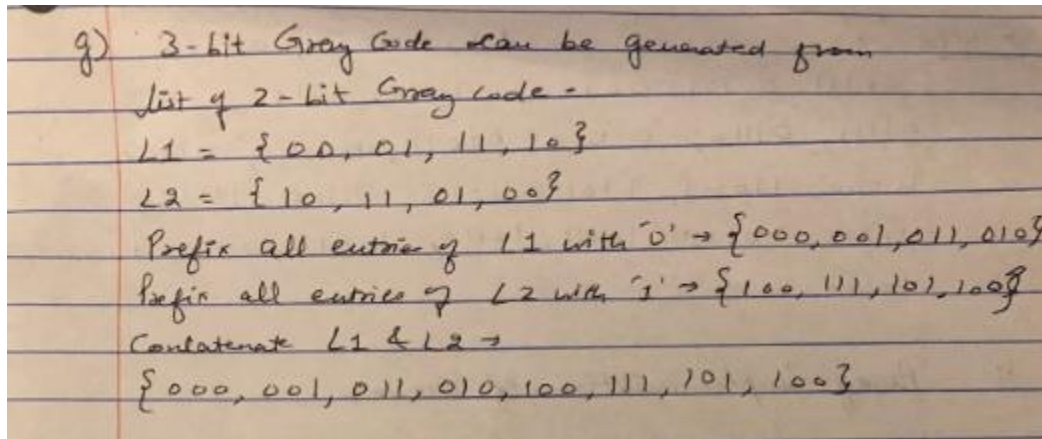 g) 3-bit Gray Code can be generated from
list of 2-bit Gray code -
L1 = {00, 01, 11, 10}
L2 = {10, 11, 01, 00}
Prefix all entries of L1 with '0' → {000, 001, 011, 010}
Prefix all entries of L2 with '1' → {100, 111, 101, 100}
Concatenate L1 & L2 →
{000, 001, 011, 010, 100, 111, 101, 100}